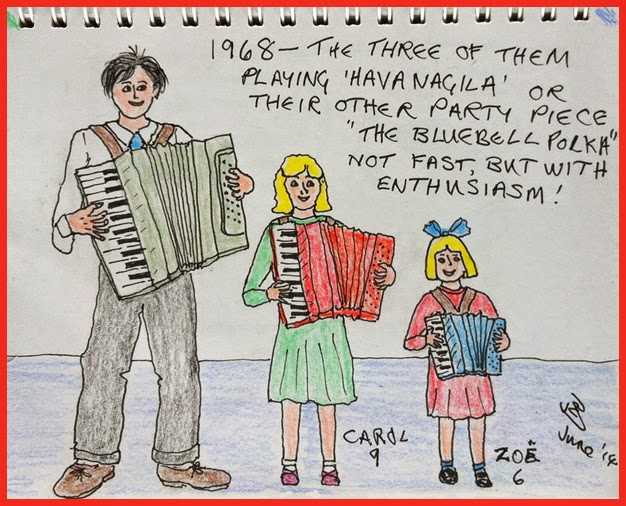 1968 – THE THREE OF THEM
PLAYING 'HAVA NAGILA' OR
THEIR OTHER PARTY PIECE
"THE BLUEBELL POLKA"
NOT FAST, BUT WITH
ENTHUSIASM!
CAROL
9
ZOË
6
June '14